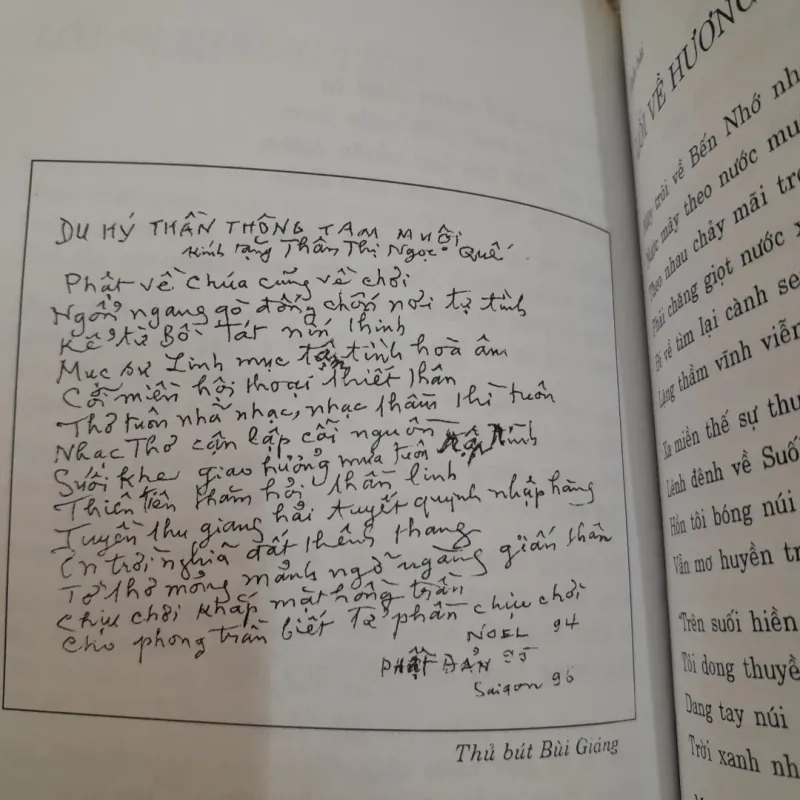 DU HÝ THẦN THÔNG TAM MUỘI
Kính tặng Thân Thị Ngọc Quế
Phật về Chúa cũng về chơi
Ngổn ngang gò đống chốn nơi tự tình
Kể từ Bồ Tát nín thinh
Mục sư Linh mục tận tình hoà âm
Cõi miền hội thoại thiết thân
Thơ tuôn nhã nhạc, nhạc thầm thì tuôn
Nhạc Thơ cận lập cõi nguồn
Suối khe giao hưởng mưa tuôn
Thiên tiên thăm hỏi thần linh
Tuyền thu giang hải tuyết quỳnh nhập hàng
Ơn trời nghĩa đất thênh thang
Tờ thơ mỏng mảnh ngỡ ngàng gián thân
Chịu chơi khắp mặt hồng trần
Cho phong trần biết Tử phần chịu chơi
NOEL 94
PHẬT ĐẢN 95
Saigon 96
Thủ bút Bùi Giáng
VỀ HƯƠNG
trôi về Bến Nhớ
mây theo nước
Theo nhau chảy mãi
Phải chăng giọt nước
Đi về tìm lại cành
Lặng thầm vĩnh viễn
Xa miền thế sự
Lênh đênh về Suối
Hồn tôi bóng núi
Vẫn mơ huyền
Trên suối hiền
Tôi dong thuyền
Dang tay núi
Trời xanh